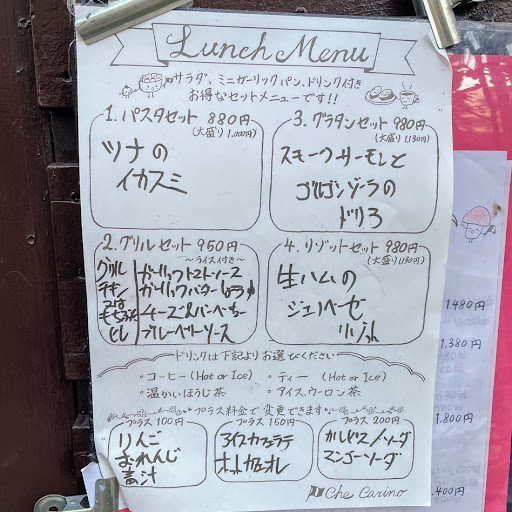 Lunch Menu
サラダ、ミニガーリックパン、ドリンク付き
お得なセットメニューです!!
1.パスタセット 880円
(大盛り 1,000円)
ツナの
イカスミ
2.グリルセット 950円
～ライス付き～
グリル
チキン
ガーリックトマトソース
ガーリックバターしょうゆ
ブルーベリーソース
3.グラタンセット 980円
(大盛り 1,130円)
スモークサーモンと
ゴルゴンゾーラの
ドリア
4.リゾットセット 980円
(大盛り 1,130円)
生ハムの
ジェノベーゼ
リゾット
ドリンクは下記よりお選びください
・コーヒー(Hot or Ice)
・ティー (Hot or Ice)
・温かいほうじ茶
・アイスウーロン茶
プラス料金で変更できます
プラス100円
りんご
おれんじ
青汁
プラス150円
アイスカフェラテ
ホットカフェオレ
プラス200円
カルピスソーダ
マンゴーソーダ
Che Carino
1,480円
1,380円
1,800円
400円